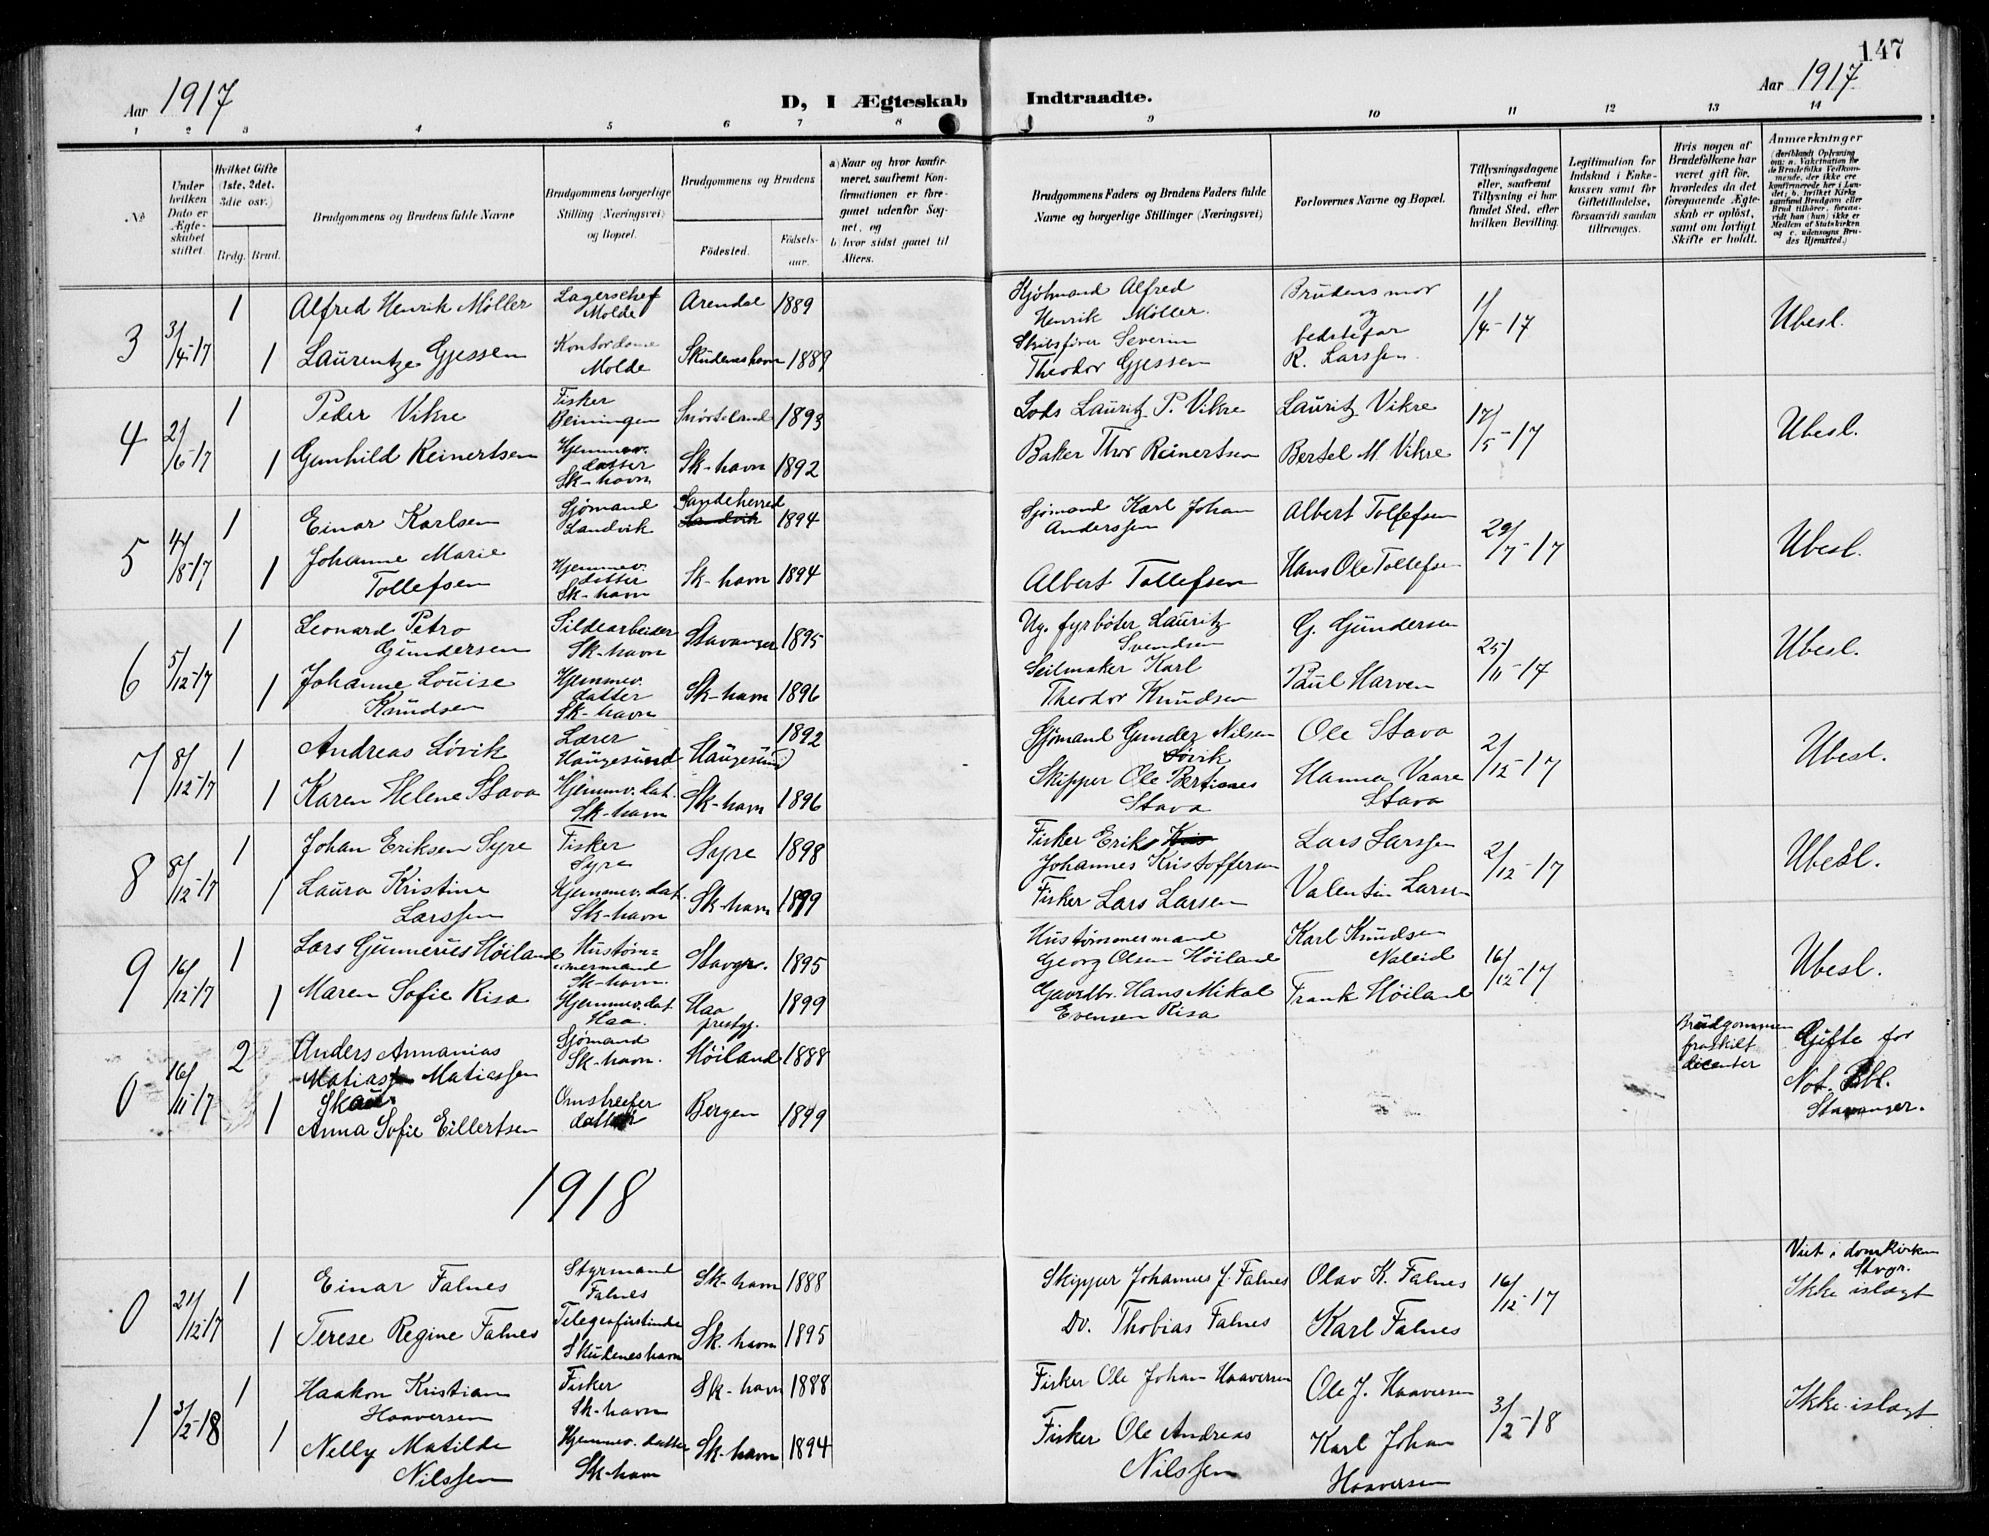 147
Aar 1917
D, I Ægteskab Indtraadte.
Aar 1917
1 2 3 4 5 6 7 8 9 10 11 12 13 14
№
Under hvilken Dato er Ægteskabet stiftet.
Hvilket Gifte (1ste, 2det, 3die osv.)
Brdg. Brud.
Brudgommens og Brudens fulde Navne
Brudgommens borgerlige Stilling (Næringsvei) og Bopæl.
Brudgommens og Brudens
Födested.
Födsels-aar.
a) Naar og hvor konfirmeret, saafremt Konfirmationen er foregaaet udenfor Sognet, og
b) hvor sidst gaaet til Alters.
Brudgommens Faders og Brudens Faders fulde Navne og borgerlige Stillinger (Næringsvei)
Forlovernes Navne og Bopæl.
Tillysningsdagene eller, saafremt Tillysning ei har fundet Sted, efter hvilken Bevilling.
Legitimation for Indskud i Enkekassen samt for Giftetilladelse, forsaavidt saadan tiltrænges.
Hvis nogen af Brudefolkene har været gift för, hvorledes da det foregaaende Ægteskab er oplöst, samt om lovligt Skifte er holdt.
Anmærkninger
(deriblandt Oplysning om: a. Vakcination for de Brudefolks Vedkommende, der ikke ere konfirmerede her i Landet; b. hvilket Kirkesamfund Brudgom eller Brud tilhörer, forsaavidt han (hun) ikke er Medlem af Statskirken og c. udensogns Brudes Hjemsted.)
3 3/4-17 1 Alfred Henrik Møller Lagerschef Molde Arendal 1889 Kjøbmand Alfred Henrik Møller. Brudens mor og 1/4-17 Ubesl.
1 Laurentze Gjessen Kontordame Molde Skudeneshavn 1889 Skibsfører Severin Theodor Gjessen bedstefar R. Larssen
4 2/6-17 1 Peder Vikre Fisker Beiningen 1893 Lods Lauritz P. Vikre Lauritz Vikre 17/5-17 Ubesl.
1 Gunhild Reinertsen Hjemmev. datter Sk-havn Sk-havn 1892 Baker Thor Reinertsen Bertel M. Vikre
5 4/8-17 1 Einar Karlsen Sjømand Sandvik Sandeherred Sandvik 1894 Sjømand Karl Johan Anderssen Albert Tollefsen 29/7-17 Ubesl.
1 Johanne Marie Tollefsen Hjemmev. datter Sk-havn Sk-havn 1894 Albert Tollefsen Hans Ole Tollefsen
6 5/12-17 1 Leonard Petro Gundersen Sildearbeider Sk-havn Stavanger 1895 Ug. fyrbøter Lauritz Svendsen G. Gundersen 25/11-17 Ubesl.
1 Johanne Louise Knudsen Hjemmev. datter Sk-havn Sk-havn 1896 Seilmaker Karl Theodor Knudsen Paul Harven
7 8/12-17 1 Andreas Løvik Lærer Haugesund Haugesund 1892 Sjømand Gunder Nilsen Løvik Ole Stava 2/12-17 Ubesl.
1 Karen Helene Stava Hjemmev. dat. Sk-havn Sk-havn 1896 Skipper Ole Bertines Stava Hanna Vaare Stava
8 8/12-17 1 Johan Eriksen Syre Fisker Syre Syre 1898 Fisker Erik Johannes Kristoffersen Lars Larssen 2/12-17 Ubesl.
1 Laura Kristine Larssen Hjemmev. dat. Sk-havn Sk-havn 1899 Fisker Lars Larsen Valentin Larsen
9 16/12-17 1 Lars Gunnerius Høiland Hustømmermand Sk-havn. Stavgr. 1895 Hustømmermand Georg Olsen Høiland Karl Knudsen Naleid 16/12-17 Ubesl.
1 Maren Sofie Risa Hjemmev. dat. Haa. Haa prestgj. 1899 Gaardbr. Hans Mikal Evensen Risa Frank Høiland
0 16/11-17 2 Anders Annanias Matias Matiassen Skau Sjømand Sk-havn. Høiland 1888 Brudgommen fraskilt Gifte for Not. Pbl. Stavanger.
1 Anna Sofie Eillertsen Omstreifer datter Bergen 1899
1918
0 21/12-17 1 Einar Falnes Styrmand Falnes Sk-havn 1888 Skipper Johannes J. Falnes Olav K. Falnes 16/12-17 Viet i domkirken Stvgr. Ikke islagt
1 Terese Regine Falnes Telegrafistinde Skudeneshavn Sk. havn 1895 Do. Thobias Falnes Karl Falnes
1 3/2-18 1 Haakon Kristian Haaversen Fisker Sk-havn Sk-havn 1888 Fisker Ole Johan Haaversen Ole J. Haaversen 3/2-18 Ikke islagt
1 Nelly Matilde Nilssen Hjemmev. datter Sk-havn Sk-havn 1894 Fisker Ole Andreas Nilssen Karl Johan Haaversen